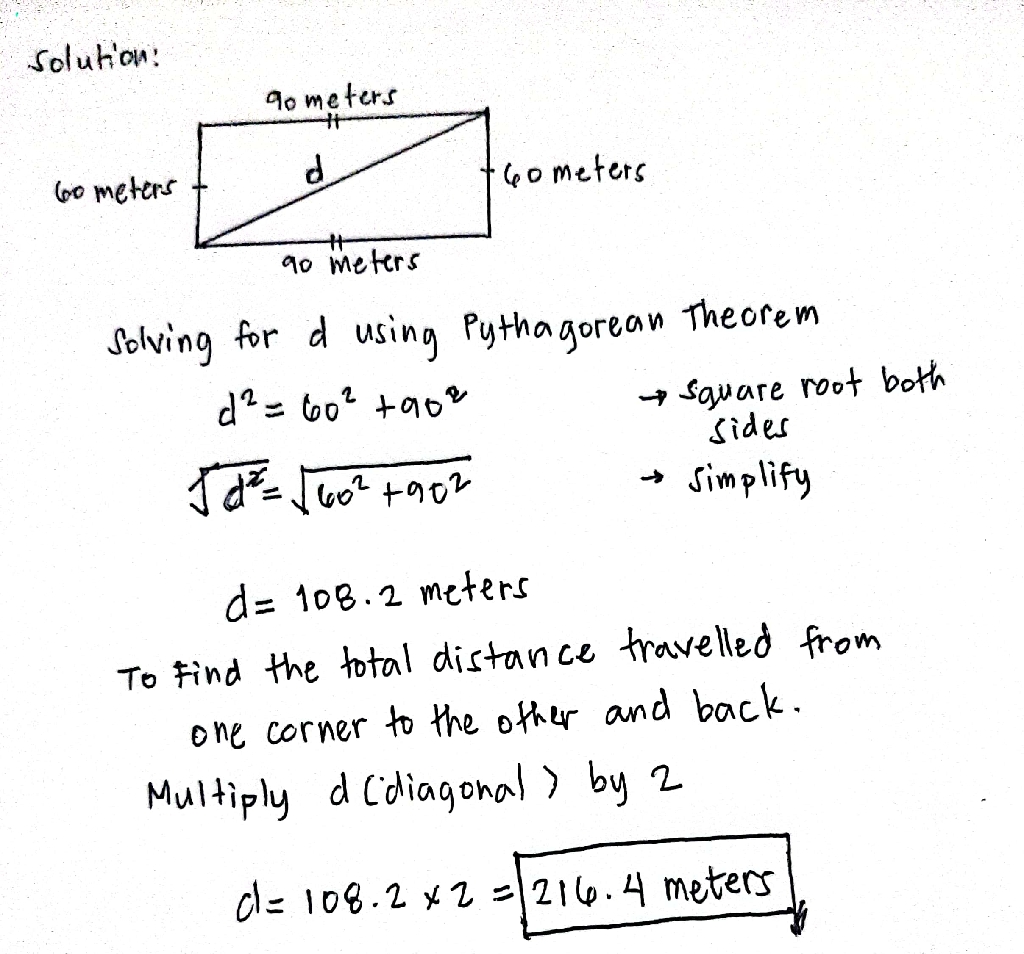 Solution:
90 meters
60 meters
d
60 meters
90 meters
Solving for d using Pythagorean Theorem
d² = 60² + 90² → square root both
sides
√d² = √60² + 90² → simplify
d = 108.2 meters
To find the total distance travelled from
one corner to the other and back.
Multiply d (diagonal) by 2
d = 108.2 x 2 = 216.4 meters